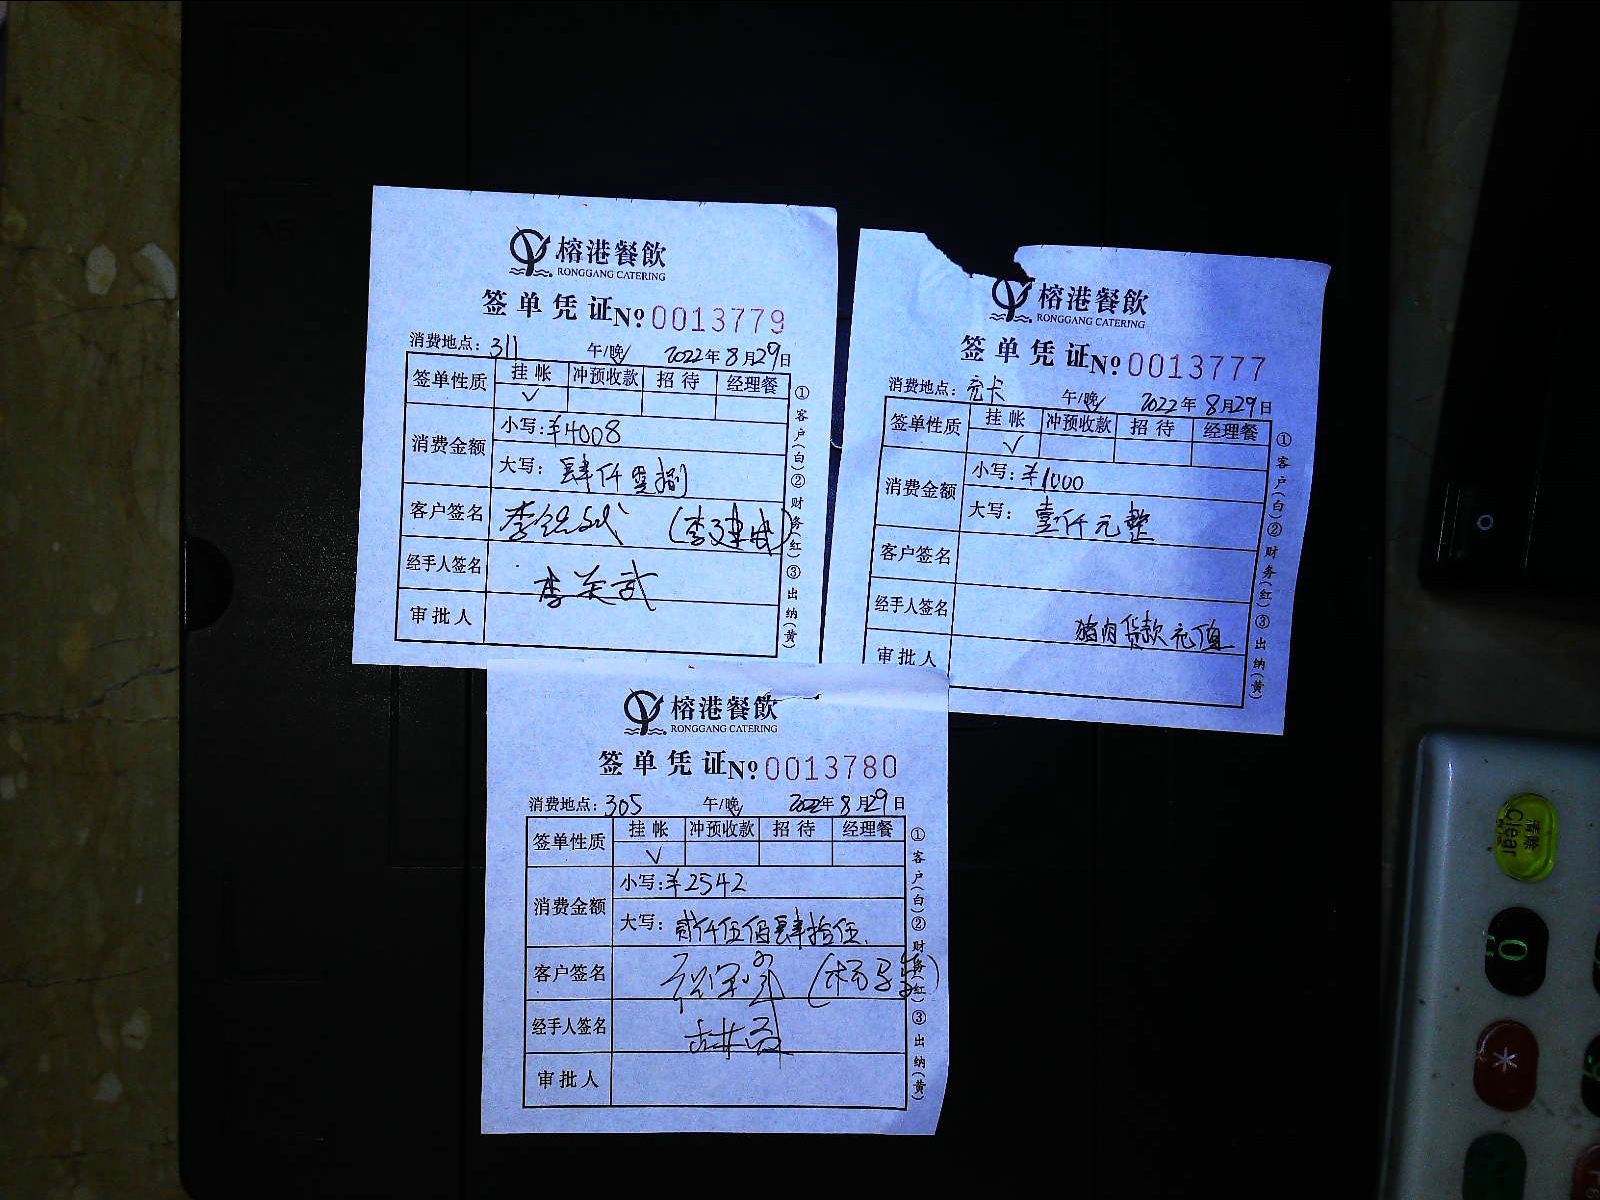 榕港餐飲
RONGGANG CATERING
签单凭证№0013779
消费地点：311 午/晚 2022年8月29日
签单性质 挂帐 冲预收款 招待 经理餐
✓
消费金额 小写：¥4008
大写：肆仟零捌
客户签名 (李建成)
经手人签名 李关武
审批人
①客户(白)②财务(红)③出纳(黄)
榕港餐飲
RONGGANG CATERING
签单凭证№0013777
消费地点：充卡 午/晚 2022年8月29日
签单性质 挂帐 冲预收款 招待 经理餐
✓
消费金额 小写：¥1000
大写：壹仟元整
客户签名
经手人签名
猪肉货款充值
审批人
①客户(白)②财务(红)③出纳(黄)
榕港餐飲
RONGGANG CATERING
签单凭证№0013780
消费地点：305 午/晚 2022年8月29日
签单性质 挂帐 冲预收款 招待 经理餐
✓
消费金额 小写：¥2542
大写：贰仟伍佰肆拾伍
客户签名
经手人签名
审批人
①客户(白)②财务(红)③出纳(黄)
清除
Clear
0
*